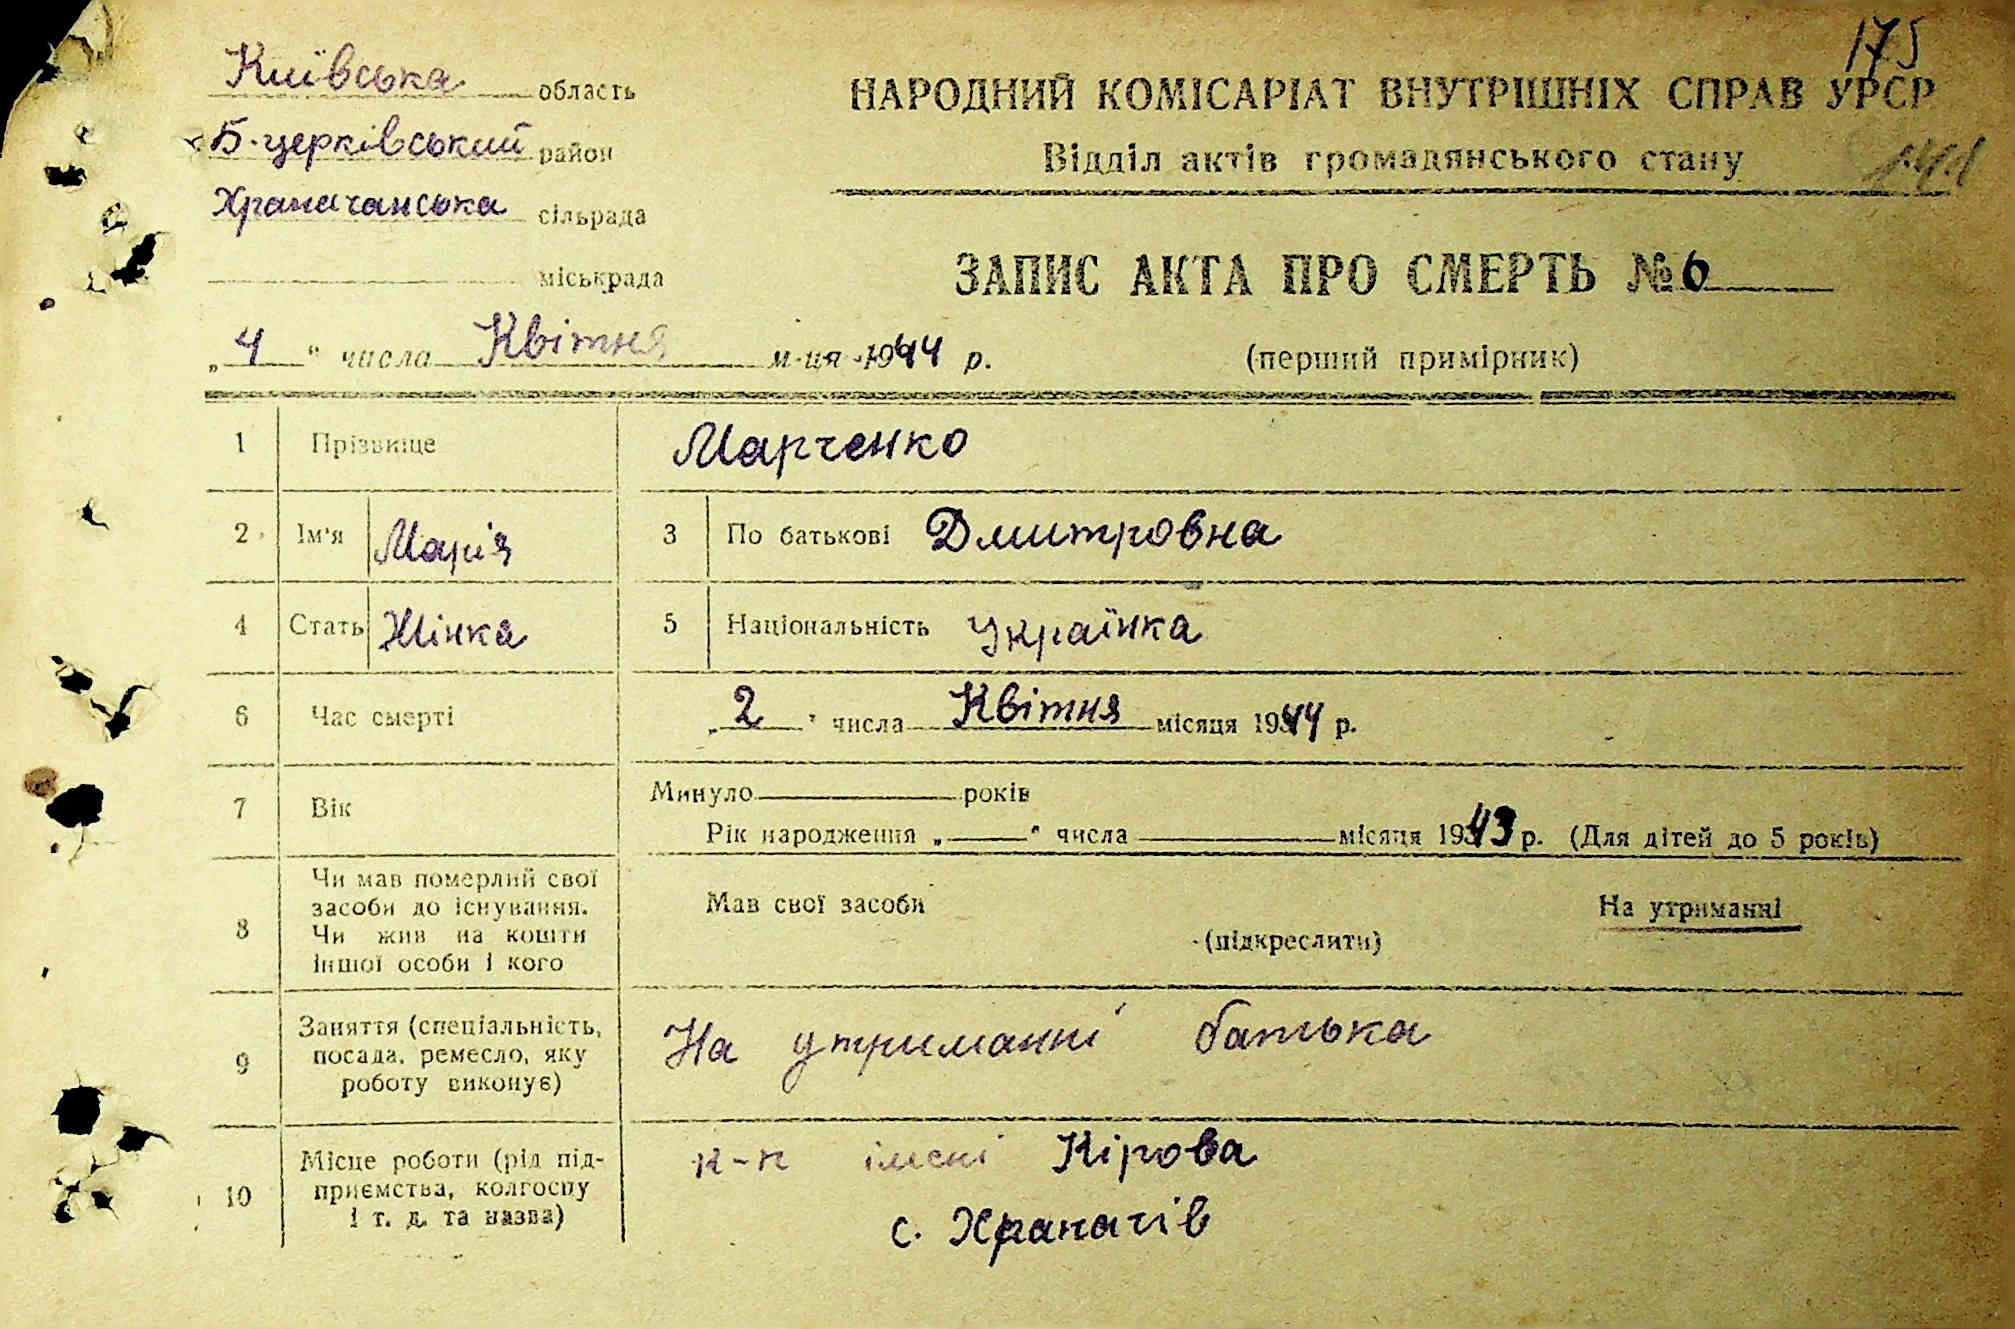 175
Київська область
НАРОДНИЙ КОМІСАРІАТ ВНУТРІШНІХ СПРАВ УРСР
Б-церківський район
Відділ актів громадянського стану
Храпачанська сільрада
міськрада
ЗАПИС АКТА ПРО СМЕРТЬ № 6
„4" числа Квітня м-ця 1944 р.
(перший примірник)
1 Прізвище Марченко
2 Ім'я Марія 3 По батькові Дмитровна
4 Стать Жінка 5 Національність Українка
6 Час смерті „2" числа Квітня місяця 1944 р.
7 Вік Минуло років
Рік народження „ " числа місяця 1943 р. (Для дітей до 5 років)
8 Чи мав померлий свої
засоби до існування.
Чи жив на кошти
іншої особи і кого
Мав свої засоби На утриманні
(підкреслити)
9 Заняття (спеціальність,
посада, ремесло, яку
роботу виконує)
На утриманні батька
10 Місце роботи (рід під-
приємства, колгоспу
і т. д. та назва)
к-п імені Кірова
с. Храпачів